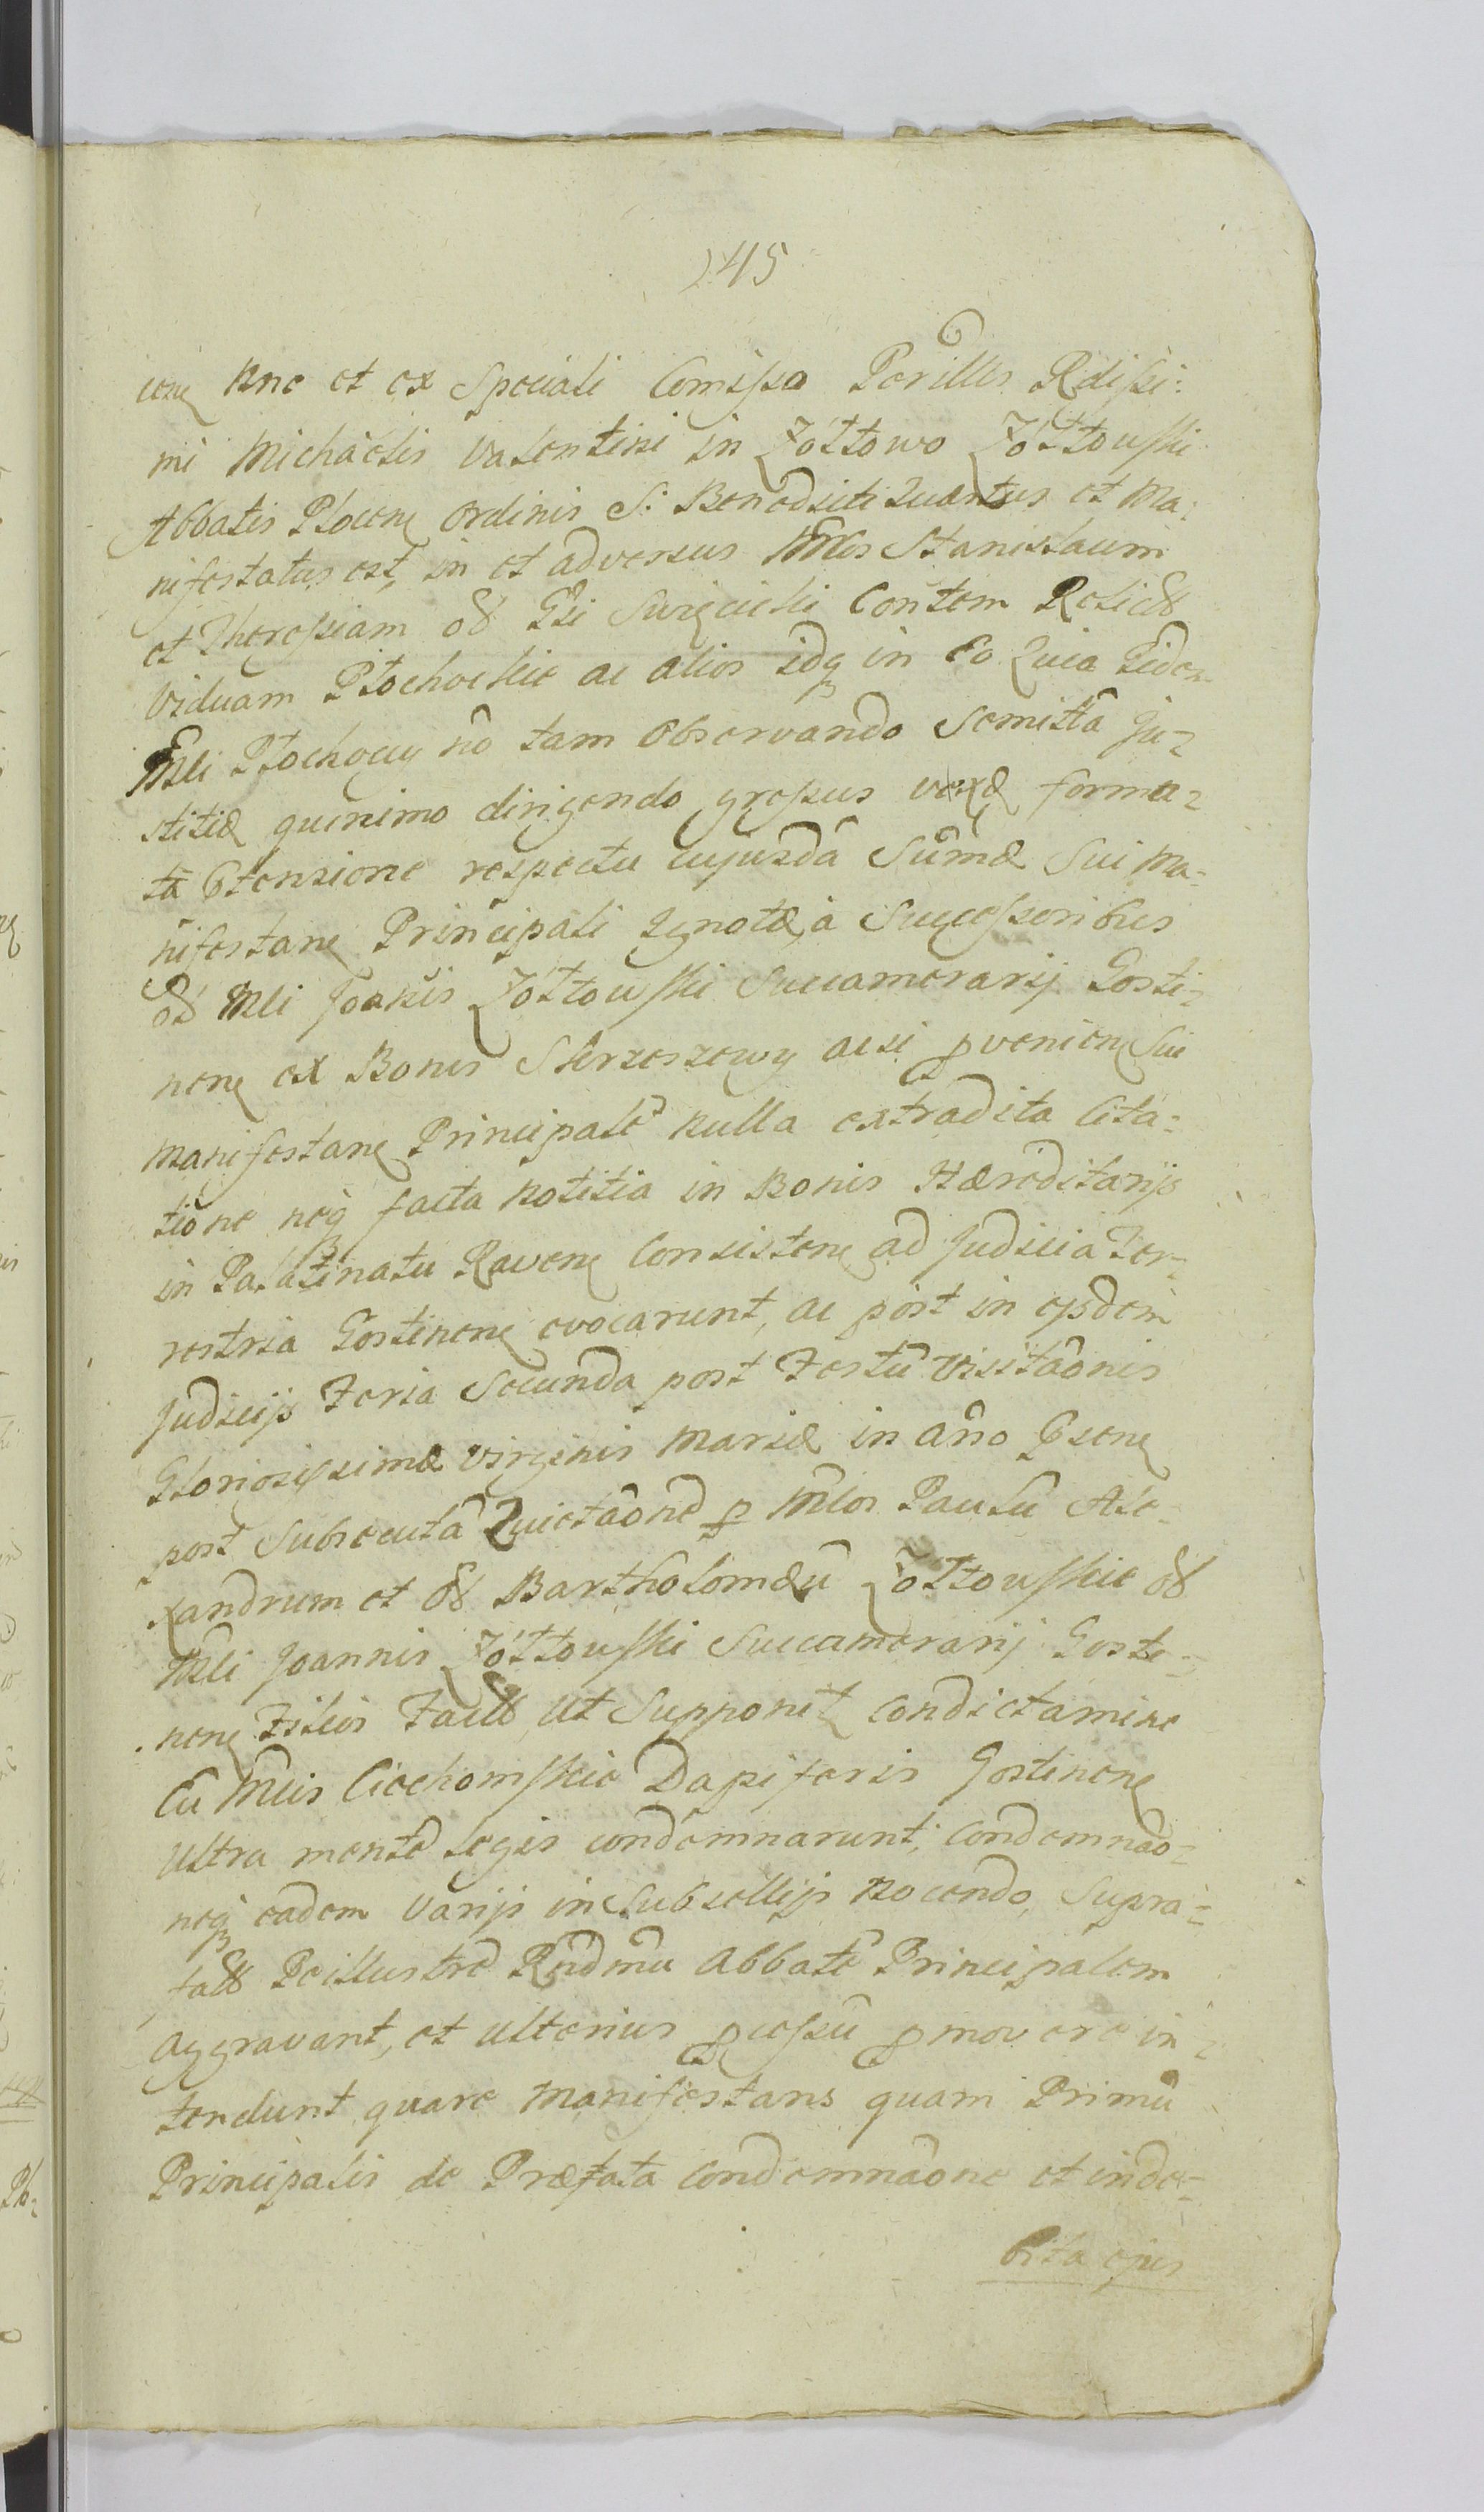 145
nne et ex Speciali Comissa Perillis Rdissi:
mi Michäelis Valentini in Zółtowo Zółtowski
Abbatis Plocen Ordinis S. Benedicti Questus et Ma:
nifestatus est, in et adversus Mfcos Stanislaum
et Theressiam olim Gsi Swięcicki Contem Relictam
Viduam Płochockie ac alios idq in Eo Quia iidem
Mfci Płochoccy nō tam Observando Semitā Ju-
stitiæ quinimo dirigendo gressus vexæ forma-
tā Ptensione respectu cujusdā Sūmæ Sui Ma-
nifestan Principali Ignotæ, à Successoribus
olim Mfci Joanis Zółtowski Succamerarij Gosti-
nen ex Bonis Skrzeszewy acsi pvenien Sui
manifestan Principalē nulla extradita Cita-
tione neq facta notitia in Bonis Hæreditarijs
in Palatinatu Raven Consisten ad Judicia Ter-
restria Gostinen evocarunt, ac post in eisdem
Judicijs Feria Secunda post Festū Visitāonis
Gloriosissimæ Virginis Mariæ in Año Psen
post Subsecutā Quietāonē p Mfcos Paulū Ale-
xandrum et olim Bartholomæū Zółtowskie olim
Mfci Joannis Zółtowski Succamerarij Goste-
nen Filios Factam, Ut Supponit condictamine
Cū Mfcis Ciechomskie Dapiferis Gostinen
Ultra mentē legis condemnarunt, Condemnāo-
neq eadem varijs in Subsellijs nocendo, Supra-
tactum Peillustrē Rndmū Abbatē Principalem
aggravant, et ulterius pcessū pmovere in-
tendunt quare Manifestans quam Primū
Principalis de Præfata Condemnāone et inde-
bita ejus